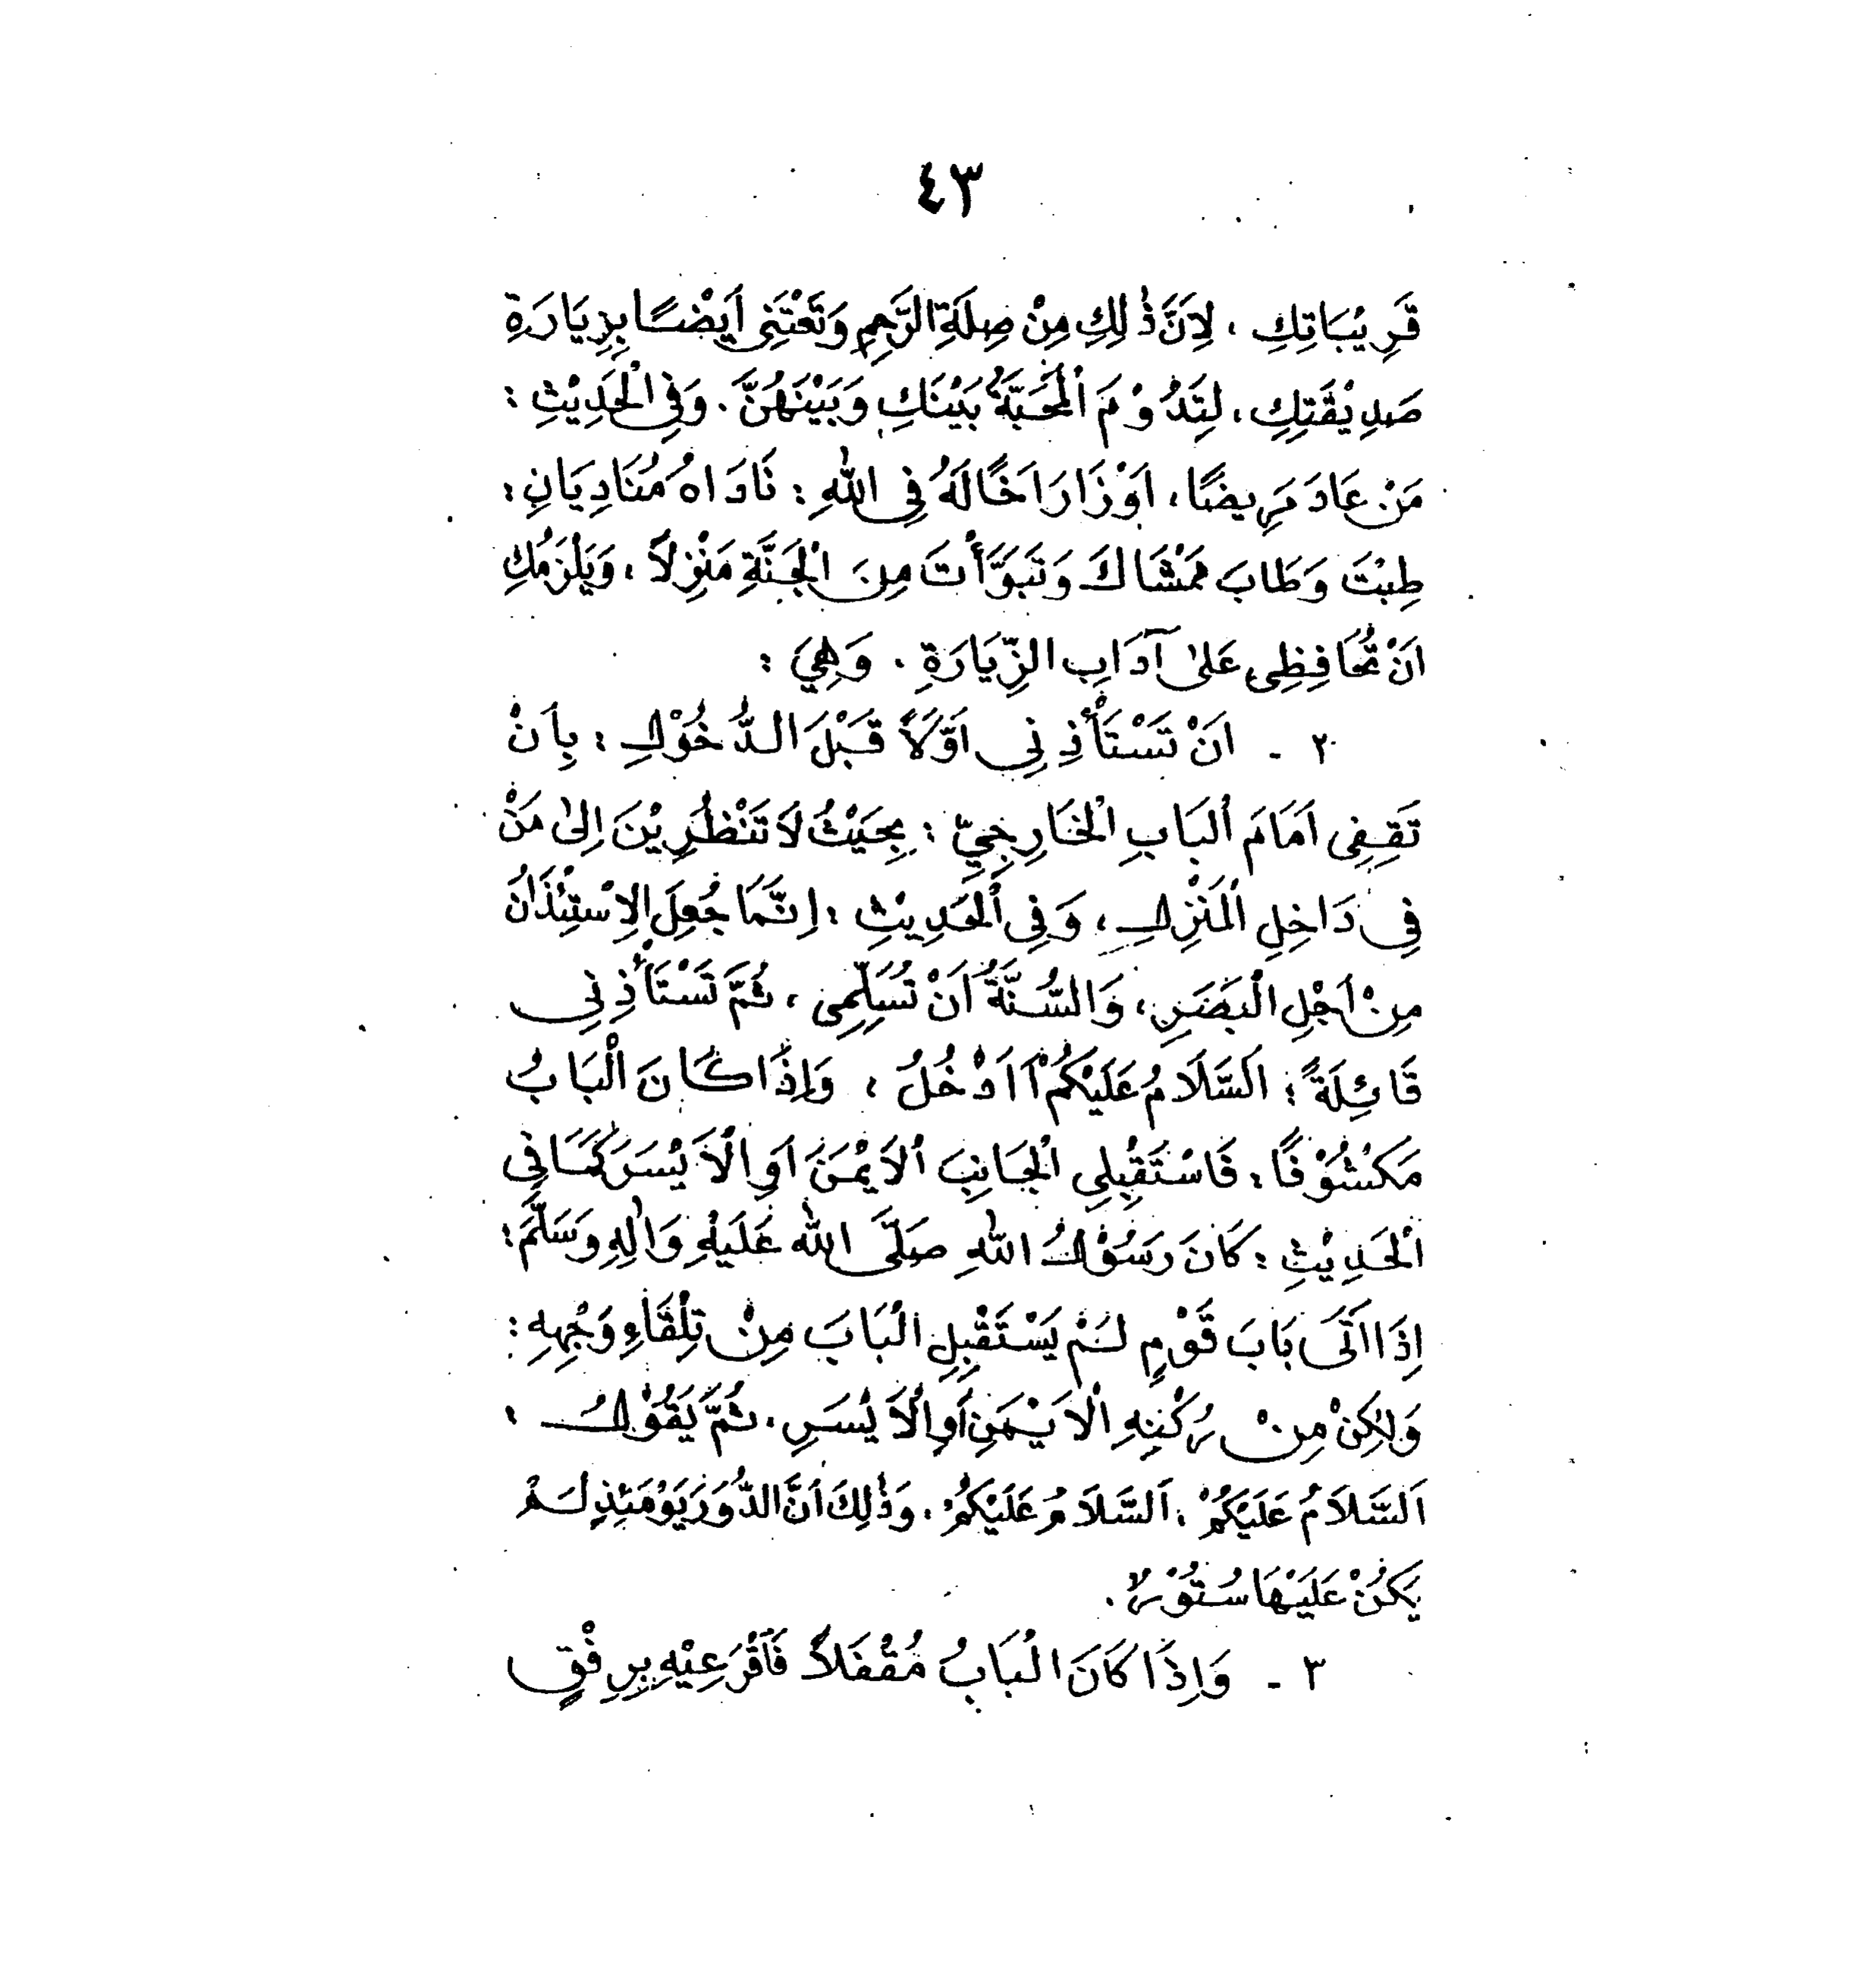 ٤٣
قَرِيْبَاتِكِ ، لِاَنَّ ذٰلِكِ مِنْ صِلَةِ الرَّحِمِ وَتَعْتَنِى اَيْضًا بِزِيَارَةِ
صَدِيْقَتِكِ ، لِتَدُوْمَ الْمَحَبَّةُ بَيْنَكِ وَبَيْنَهُنَّ . وَفِى الْحَدِيْثِ :
مَنْ عَادَ مَرِيضًا ، اَوْ زَارَ اَخًا لَهُ فِى اللهِ : نَادَاهُ مُنَادِيَانِ :
طِبْتَ وَطَابَ مَمْشَاكَ وَتَبَوَّأْتَ مِنَ الْجَنَّةِ مَنْزِلاً ، وَيَلْزَمُكِ
اَنْ تُحَافِظِى عَلىٰ آدَابِ الزِّيَارَةِ . وَهِيَ :
٢ - اَنْ تَسْتَأْذِنِى اَوَّلاً قَبْلَ الدُّخُوْلِ : بِاَنْ
تَقِفِى اَمَامَ الْبَابِ الْخَارِجِيِّ : بِحَيْثُ لاَ تَنْظُرِيْنَ اِلىٰ مَنْ
فِى دَاخِلِ الْمَنْزِلِ ، وَفِى الْحَدِيثِ : اِنَّمَا جُعِلَ الِاسْتِئْذَانُ
مِنْ اَجْلِ الْبَصَرِ ، وَالسُّنَّةُ اَنْ تُسَلِّمِى ، ثُمَّ تَسْتَأْذِنِى
قَائِلَةً : اَلسَّلاَمُ عَلَيْكُمْ اَاَدْخُلُ ، وَاِذَا كَانَ الْبَابُ
مَكْشُوْفًا : فَاسْتَقْبِلِى الْجَانِبَ الْاَيْمَنَ اَوِ الْاَيْسَرَ كَمَا فِى
الْحَدِيْثِ : كَانَ رَسُوْلُ اللهِ صَلَّى اللهُ عَلَيْهِ وَاٰلِهِ وَسَلَّمَ :
اِذَا اَتَى بَابَ قَوْمٍ لَمْ يَسْتَقْبِلِ الْبَابَ مِنْ تِلْقَاءِ وَجْهِهِ :
وَلٰكِنْ مِنْ رُكْنِهِ الْاَيْمَنِ اَوِ الْاَيْسَرِ . ثُمَّ يَقُوْلُ :
اَلسَّلاَمُ عَلَيْكُمْ ، اَلسَّلاَمُ عَلَيْكُمْ ، وَذٰلِكَ اَنَّ الدُّوْرَ يَوْمَئِذٍ لَمْ
يَكُنْ عَلَيْهَا سُتُوْرٌ .
٣ - وَاِذَا كَانَ الْبَابُ مُقْفَلاً فَاقْرَعِيْهِ بِرِفْقٍ